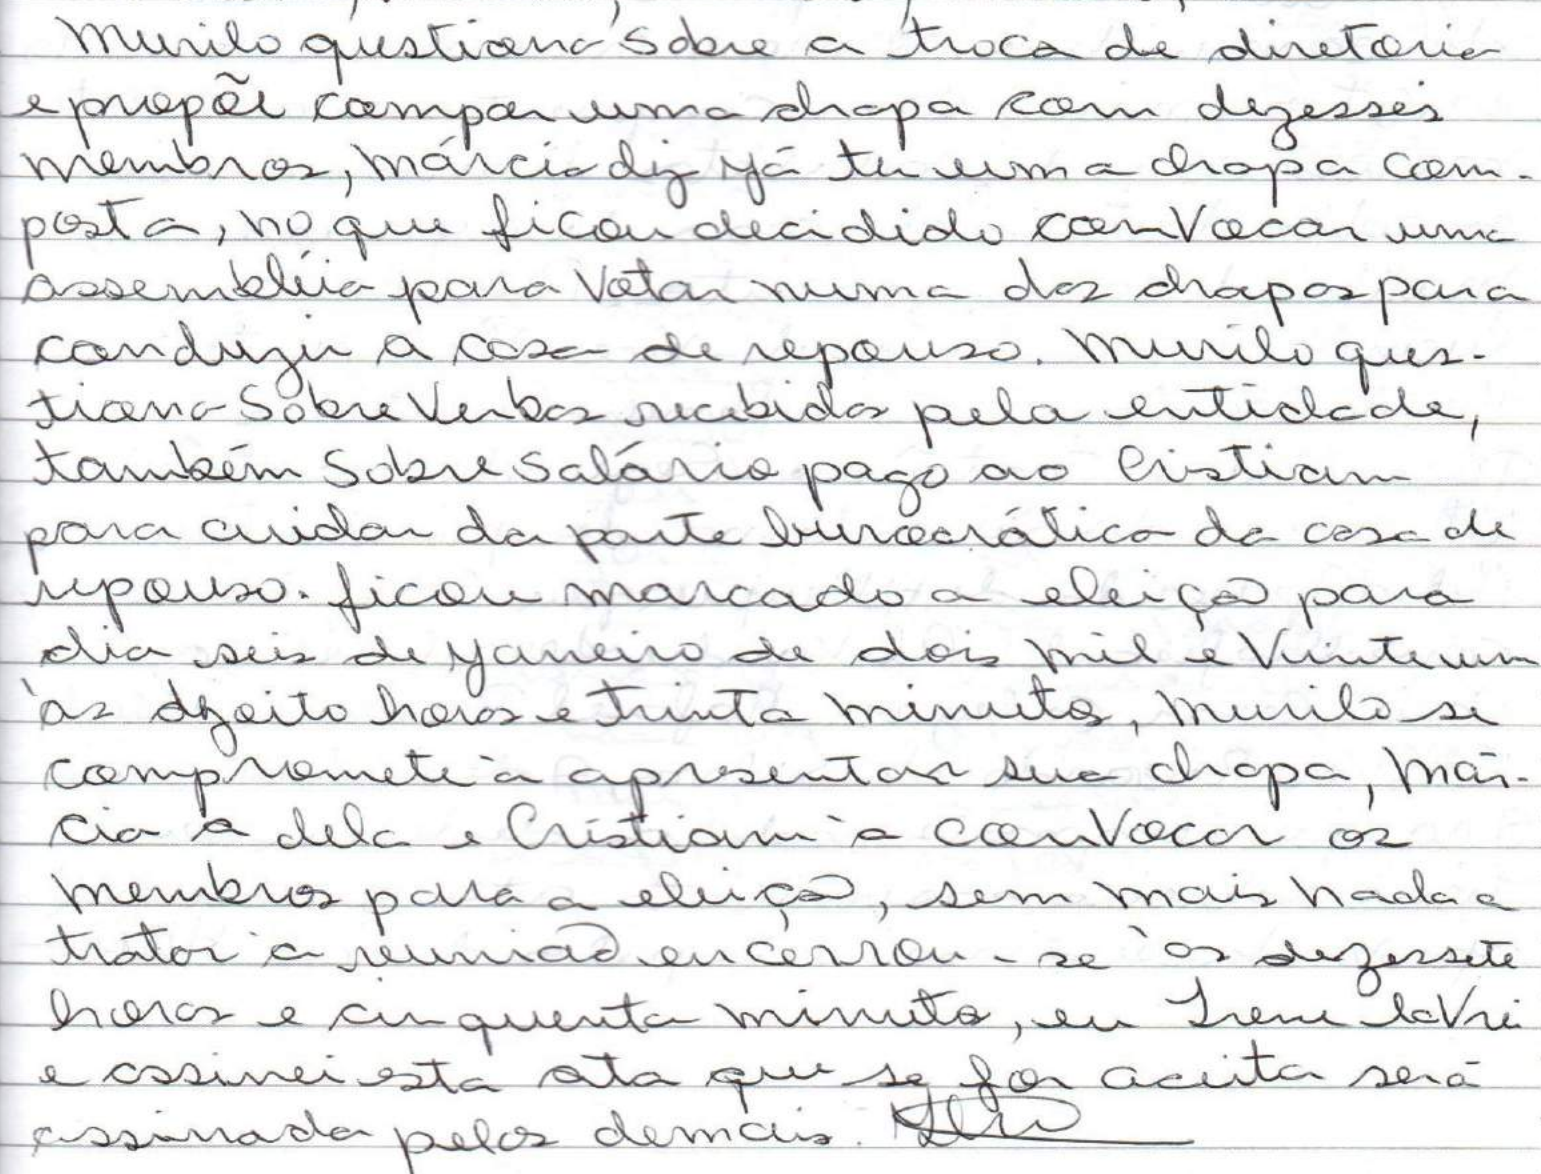 Murilo questiona sobre a troca de diretoria
e propõe compor uma chapa com dezesseis
membros, Márcia diz já ter uma chapa com-
posta, no que ficou decidido convocar uma
assembléia para votar numa das chapas para
conduzir a casa de repouso. Murilo ques-
tiona sobre verbas recebidas pela entidade,
também sobre salário pago ao Cristiam
para cuidar da parte burocrática da casa de
repouso. ficou marcado a eleição para
dia seis de janeiro de dois mil e vinte um
às dezoito horas e trinta minutos, Murilo se
compromete à apresentar sua chapa, Már-
cia a dela e Cristiam à convocar os
membros para a eleição, sem mais nada a
tratar a reunião encerrou-se às dezessete
horas e cinquenta minutos, eu Irene lavrei
e assinei esta ata que se for aceita será
assinada pelos demais.